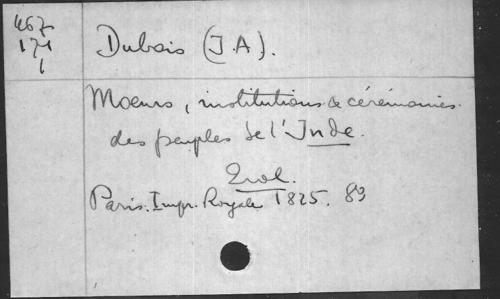 467
171
1
Dubois (J.A).
Moeurs, institutions & cérémonies
des peuples de l'Inde.
2 vol.
Paris. Impr. Royale 1825. 8º